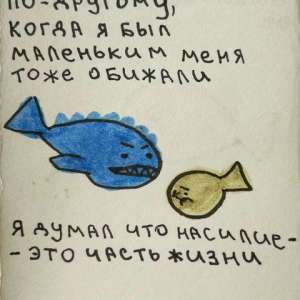 по-другому,
когда я был
маленьким меня
тоже обижали
я думал что насилие-
- это часть жизни